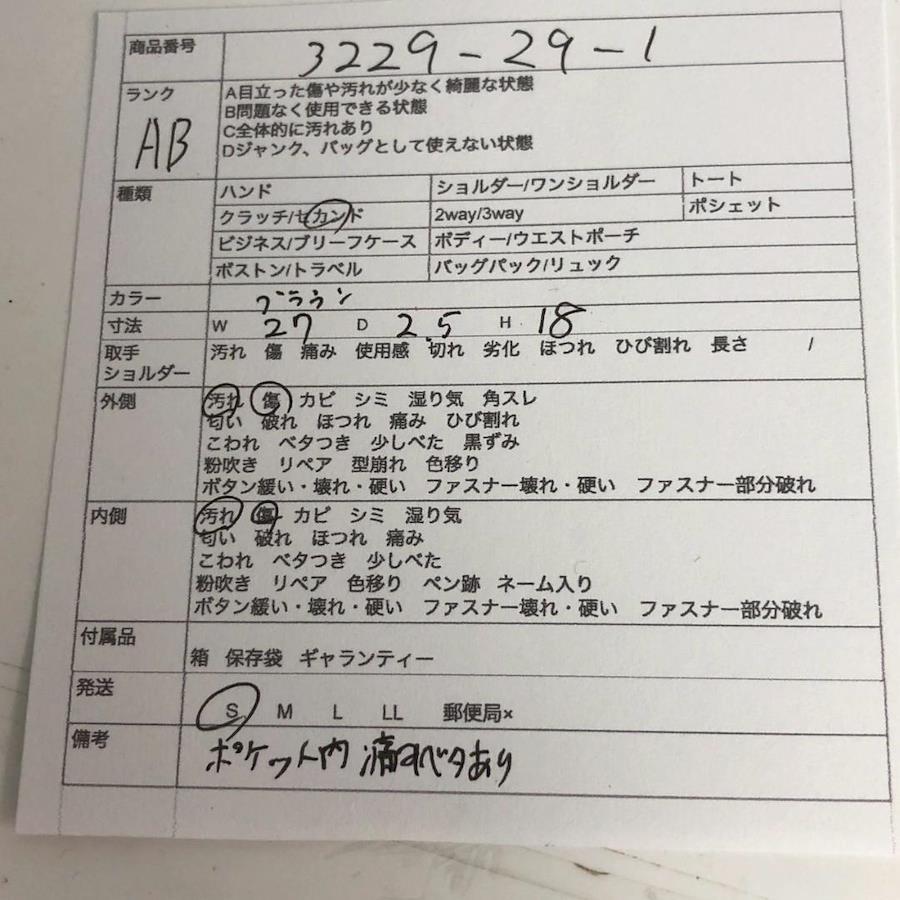 商品番号 3229-29-1
ランク AB
A目立った傷や汚れが少なく綺麗な状態
B問題なく使用できる状態
C全体的に汚れあり
Dジャンク、バッグとして使えない状態
種類 ハンド ショルダー/ワンショルダー トート
クラッチ/セカンド 2way/3way ポシェット
ビジネス/ブリーフケース ボディー/ウエストポーチ
ボストン/トラベル バッグパック/リュック
カラー ブラウン
寸法 W 27 D 2.5 H 18
取手 汚れ 傷 痛み 使用感 切れ 劣化 ほつれ ひび割れ 長さ /
ショルダー
外側 汚れ 傷 カビ シミ 湿り気 角スレ
匂い 破れ ほつれ 痛み ひび割れ
こわれ ベタつき 少しべた 黒ずみ
粉吹き リペア 型崩れ 色移り
ボタン緩い・壊れ・硬い ファスナー壊れ・硬い ファスナー部分破れ
内側 汚れ 傷 カビ シミ 湿り気
匂い 破れ ほつれ 痛み
こわれ ベタつき 少しべた
粉吹き リペア 色移り ペン跡 ネーム入り
ボタン緩い・壊れ・硬い ファスナー壊れ・硬い ファスナー部分破れ
付属品
箱 保存袋 ギャランティー
発送
S M L LL 郵便局×
備考
ポケット内 痛みベタあり